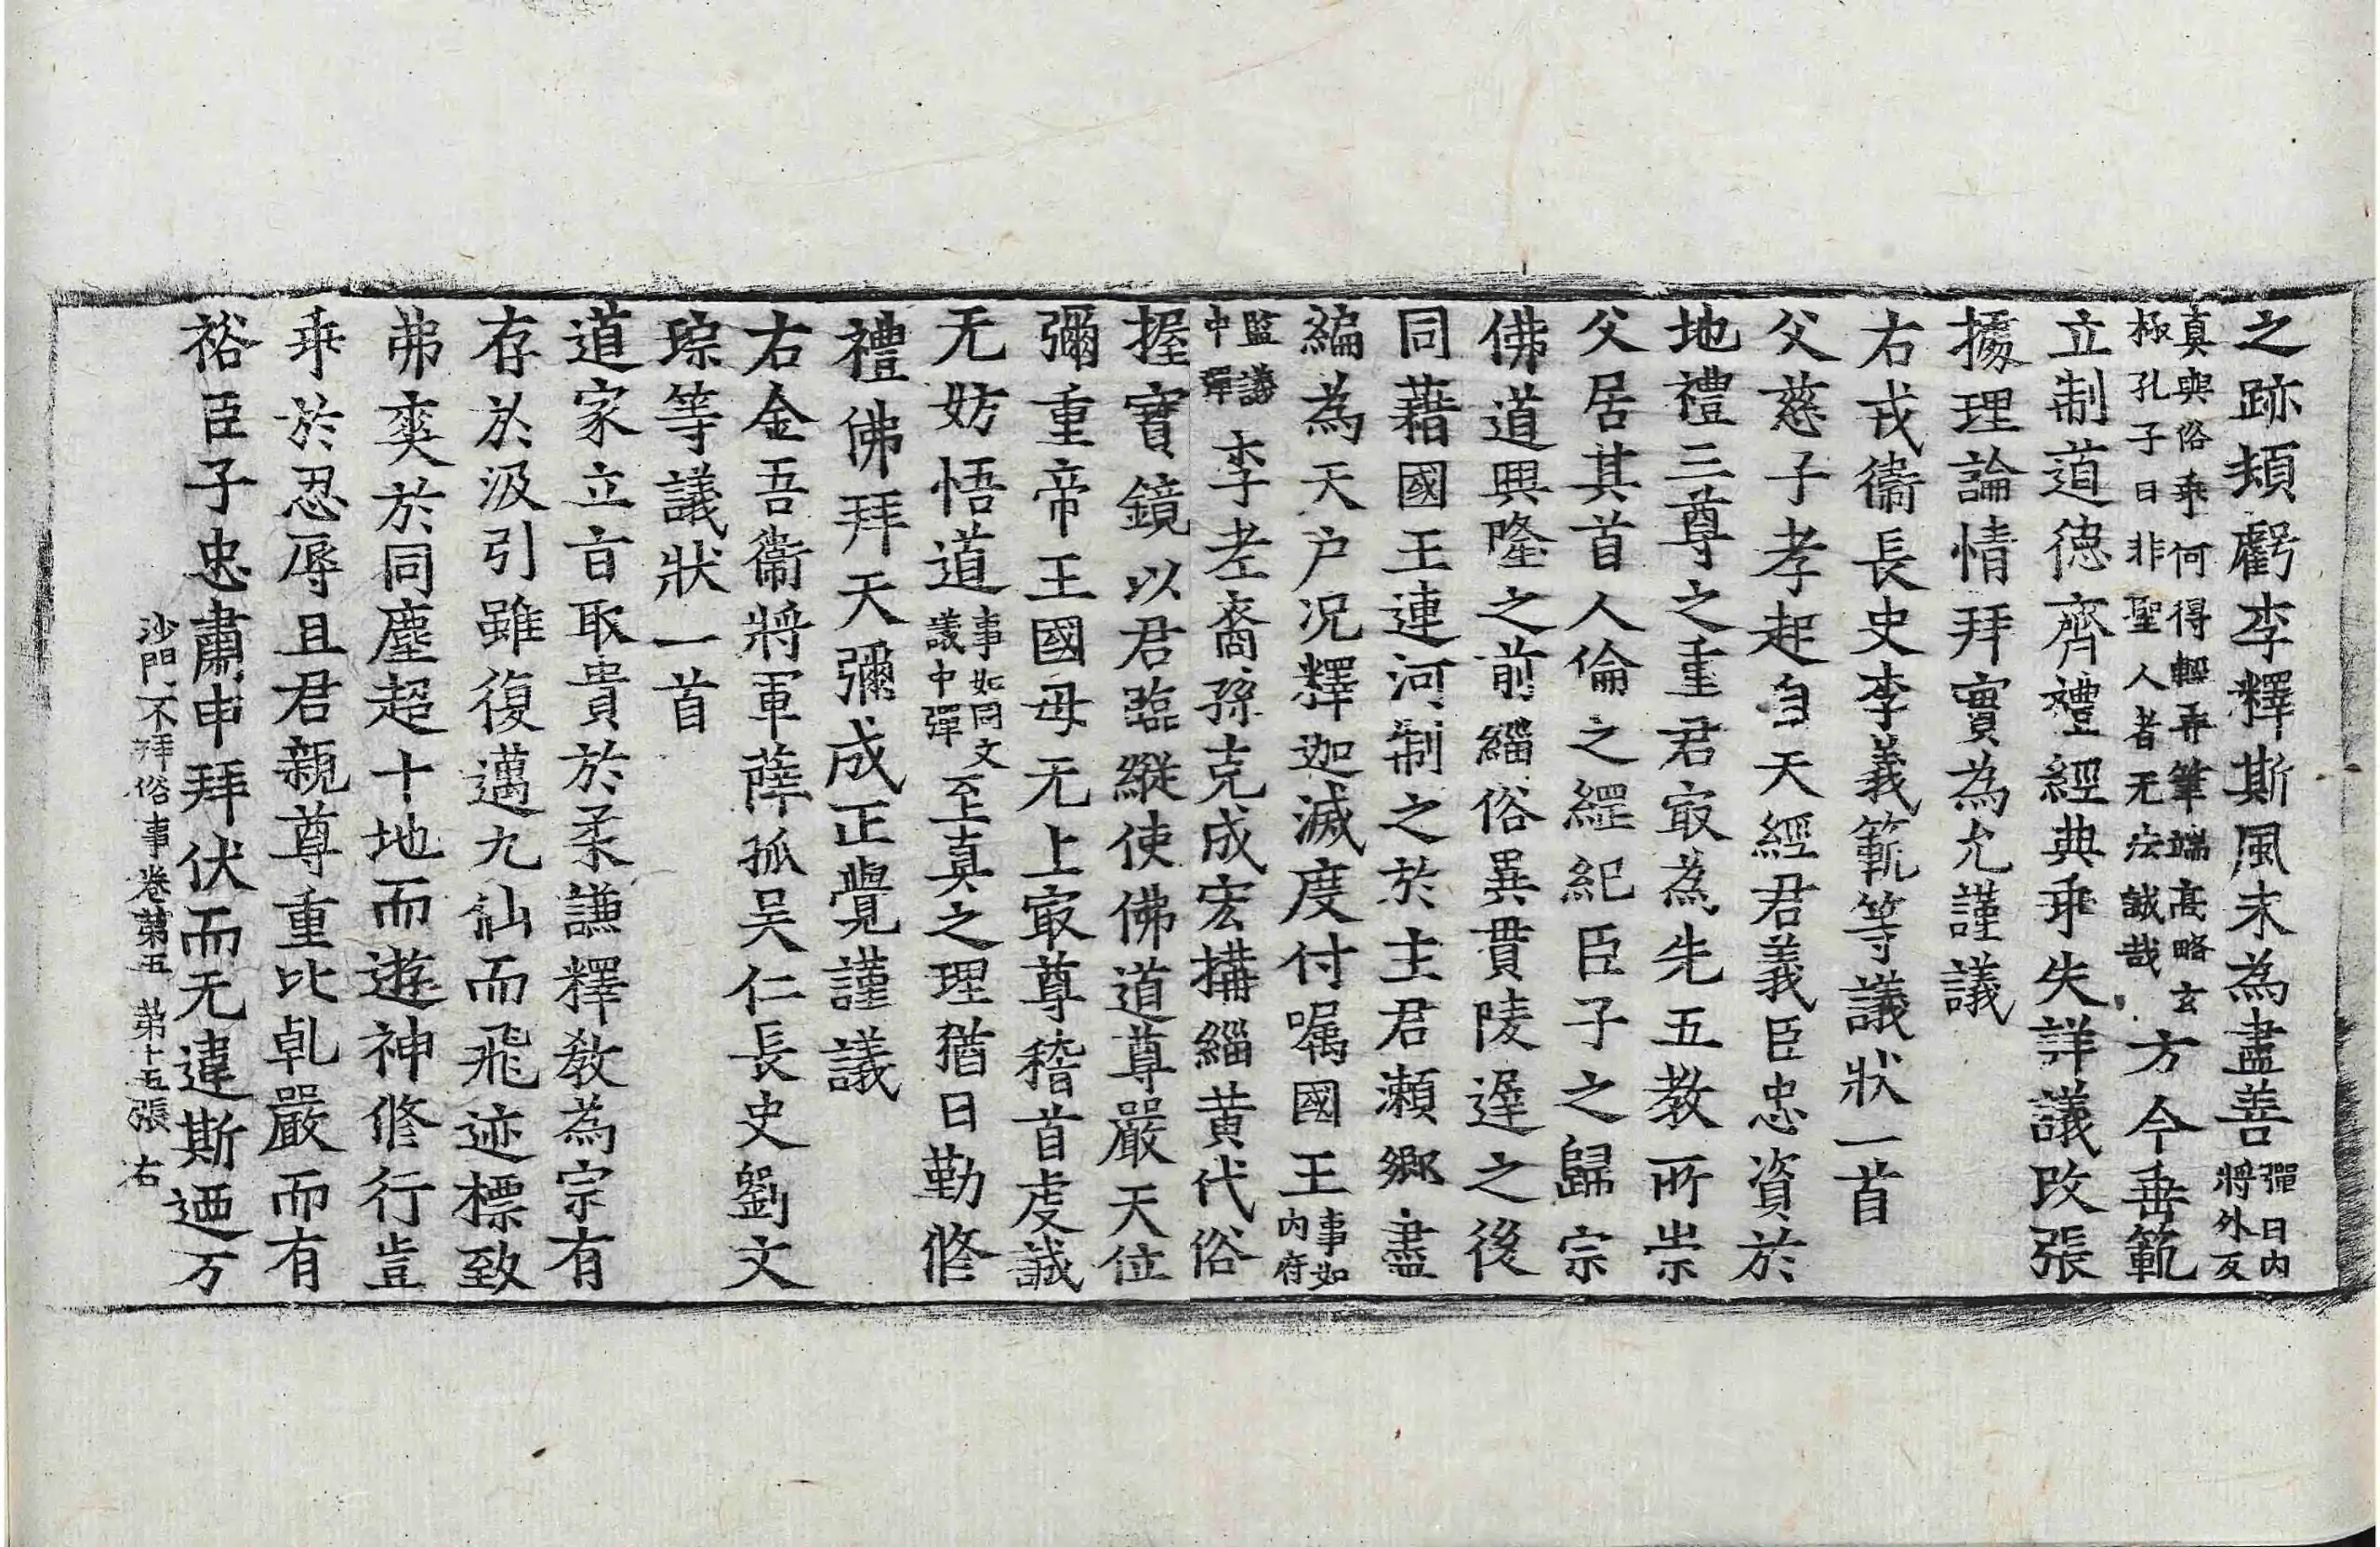 之跡頻虧李釋斯風未為盡善彈曰内將外反
真與俗乖何得輕弄筆端高略玄極孔子曰非聖人者无法誠哉方今垂範
立制道德齊禮經典乖失詳議改張
據理論情拜實為允謹議
右戎衛長史李義範等議狀一首
父慈子孝起自天經君義臣忠資於
地禮三尊之重君冣為先五教所崇
父居其首人倫之經紀臣子之歸宗
佛道興隆之前緇俗異貫陵遲之後
同藉國王連河制之於主君瀨鄉盡
編為天户况釋迦滅度付囑國王事如内府
監議中彈李老裔孫克成宏搆緇黄代俗
握寶鏡以君臨縱使佛道尊嚴天位
彌重帝王國母无上冣尊稽首虔誠
无妨悟道事如司文議中彈至真之理猶曰勤修
禮佛拜天彌成正覺謹議
右金吾衛將軍薛孤吴仁長史劉文
琮等議狀一首
道家立㫖取貴於柔謙釋教為宗有
存於汲引雖復邁九仙而飛迹標致
弗爽於同塵超十地而遊神修行豈
乖於忍辱且君親尊重比乹嚴而有
裕臣子忠肅申拜伏而无違斯迺万
沙門不拜俗事卷第五 第十五張 右